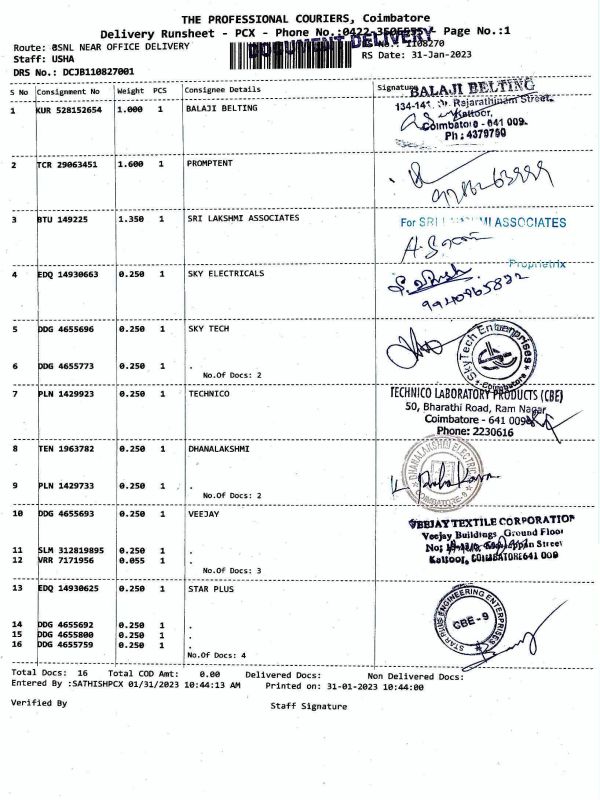 THE PROFESSIONAL COURIERS, Coimbatore
Delivery Runsheet - PCX - Phone No.:0422-3505555 Page No.:1
DOCUMENT DELIVERY
Route: BSNL NEAR OFFICE DELIVERY No.: 1108270
Staff: USHA RS Date: 31-Jan-2023
DRS No.: DCJB110827001
S No Consignment No Weight PCS Consignee Details Signature
1 KUR 528152654 1.000 1 BALAJI BELTING
BALAJI BELTING
134-141, Dr. Rajarathinam Street,
Kattoor,
Coimbatore - 641 009.
Ph : 4379750
2 TCR 29063451 1.600 1 PROMPTENT
3 BTU 149225 1.350 1 SRI LAKSHMI ASSOCIATES
For SRI LAKSHMI ASSOCIATES
Proprietrix
4 EDQ 14930663 0.250 1 SKY ELECTRICALS
9940965822
5 DDG 4655696 0.250 1 SKY TECH
Sky Tech Enterprises
Coimbatore
6 DDG 4655773 0.250 1 .
No.Of Docs: 2
7 PLN 1429923 0.250 1 TECHNICO
TECHNICO LABORATORY PRODUCTS (CBE)
50, Bharathi Road, Ram Nagar
Coimbatore - 641 009
Phone: 2230616
8 TEN 1963782 0.250 1 DHANALAKSHMI
DHANALAKSHMI ELECTRIC
COIMBATORE-9
9 PLN 1429733 0.250 1 .
No.Of Docs: 2
10 DDG 4655693 0.250 1 VEEJAY
VEEJAY TEXTILE CORPORATION
Veejay Buildings, Ground Floor
Street
Kattoor, COIMBATORE 641 009
11 SLM 312819895 0.250 1 .
12 VRR 7171956 0.055 1 .
No.Of Docs: 3
13 EDQ 14930625 0.250 1 STAR PLUS
STAR PLUS ENGINEERING ENTERPRISES
CBE-9
14 DDG 4655692 0.250 1 .
15 DDG 4655800 0.250 1 .
16 DDG 4655759 0.250 1 .
No.Of Docs: 4
Total Docs: 16 Total COD Amt: 0.00 Delivered Docs: Non Delivered Docs:
Entered By :SATHISHPCX 01/31/2023 10:44:13 AM Printed on: 31-01-2023 10:44:00
Verified By Staff Signature